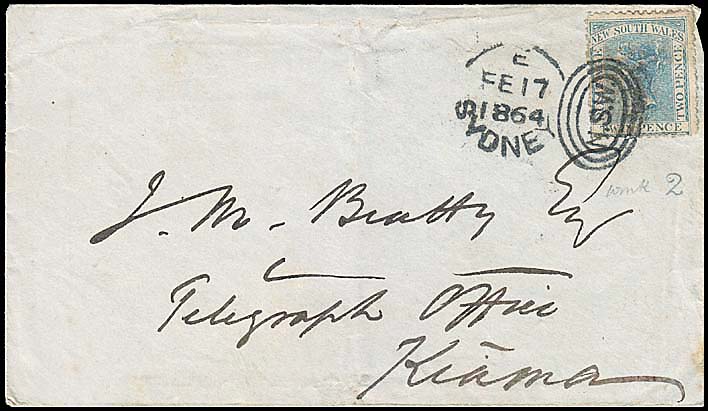 NEW SOUTH WALES
TWO PENCE
PENCE
E
FE 17
1864
SYDNEY
N.S.W
wmk 2
J. M. Beatty Esq
Telegraph Office
Kiama